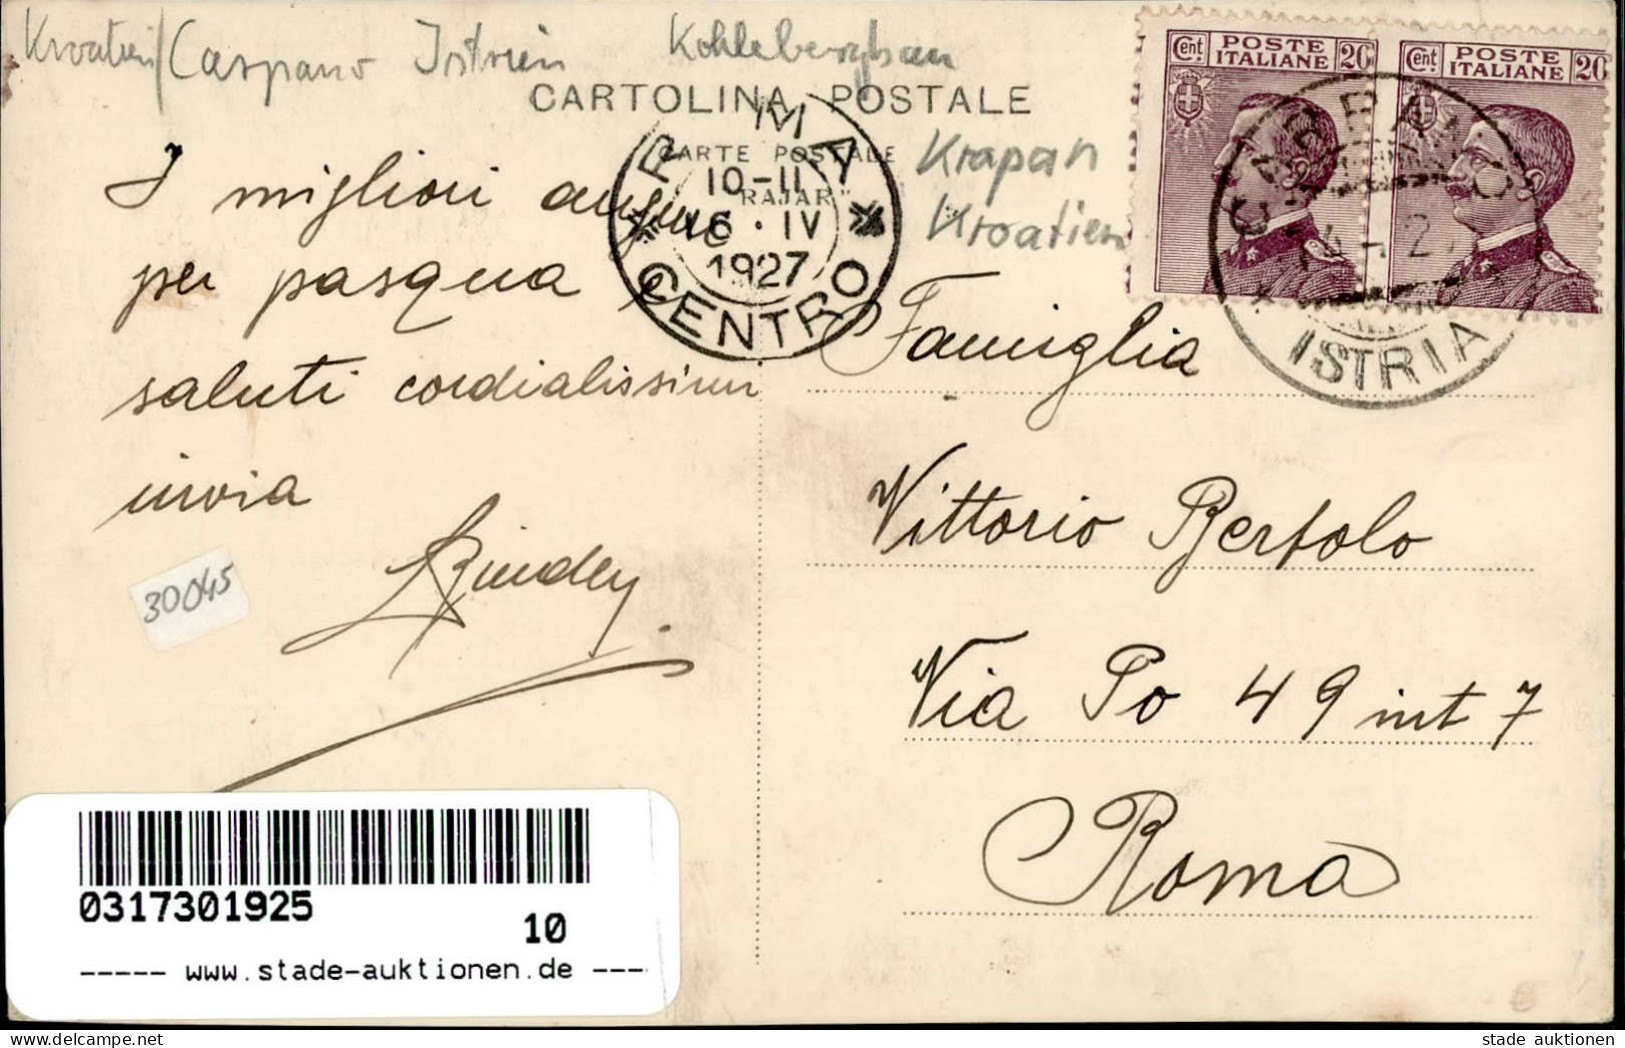 Kroatien/Carpano Istrien Kohlebergbau
CARTOLINA POSTALE
CARTE POSTALE
"RAJAR"
Krapan
Kroatien
Cent. POSTE ITALIANE 20
Cent. POSTE ITALIANE 20
CARPANO
ISTRIA
ROMA
10-11
16 · IV
1927
CENTRO
I migliori auguri
per pasqua e
saluti cordialissimi
invia
30045
Famiglia
Vittorio Bertolo
Via Po 49 int 7
Roma
0317301925
10
----- www.stade-auktionen.de ---
stade auktionen